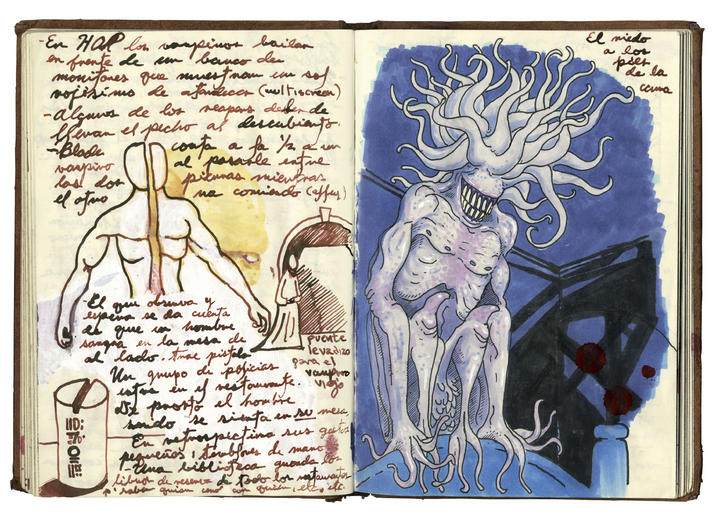 -En HOP los vampiros bailan
en frente de un banco de
monitores que muestran un sol
rojísimo de atardecer (multiscreen)
-Algunos de los reapers deben de
llevan el pecho al descubierto.
-Blade corta a la 1/2 a un
vampiro al pasarle entre
las dos piernas mientras
el otro na comiendo (effex)
-El que observa y
espera se da cuenta
de que un hombre
sangra en la mesa de
al lado. trae pistola
Un grupo de policias
entre en el restaurante.
De pronto el hombre
se sienta en su mesa,
En retrospectiva sus gestos
pequeños, temblores de mano
Una biblioteca guarda los
libros de reserva de todo los restaurantes
p' saber quien comió con quien, etc, etc.
puente
levadizo
para el
vampiro
viejo
El miedo
a los
pies
de la
cama